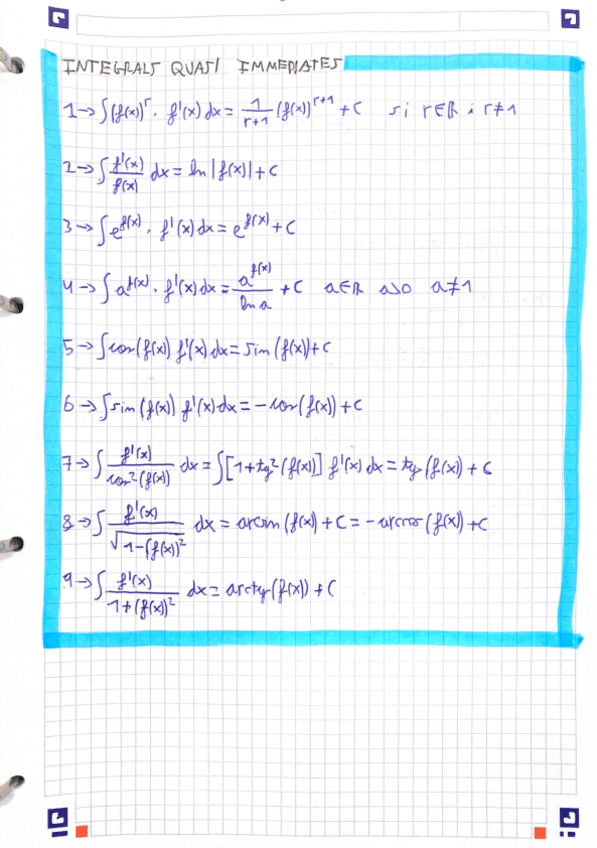 INTEGRALS QUASI IMMEDIATES
1→ ∫(f(x))^r · f'(x) dx = 1/(r+1) (f(x))^(r+1) + C si r∈ℝ i r≠1
2→ ∫ f'(x)/f(x) dx = ln |f(x)| + C
3→ ∫ e^f(x) · f'(x) dx = e^f(x) + C
4→ ∫ a^f(x) · f'(x) dx = a^f(x)/ln a + C a∈ℝ a>0 a≠1
5→ ∫cos(f(x)) f'(x) dx = sin(f(x)) + C
6→ ∫sin(f(x)) f'(x) dx = -cos(f(x)) + C
7→ ∫ f'(x)/cos²(f(x)) dx = ∫[1+tg²(f(x))] f'(x) dx = tg(f(x)) + C
8→ ∫ f'(x)/√(1-(f(x))²) dx = arcsin(f(x)) + C = -arccos(f(x)) + C
9→ ∫ f'(x)/(1+(f(x))²) dx = arctg(f(x)) + C